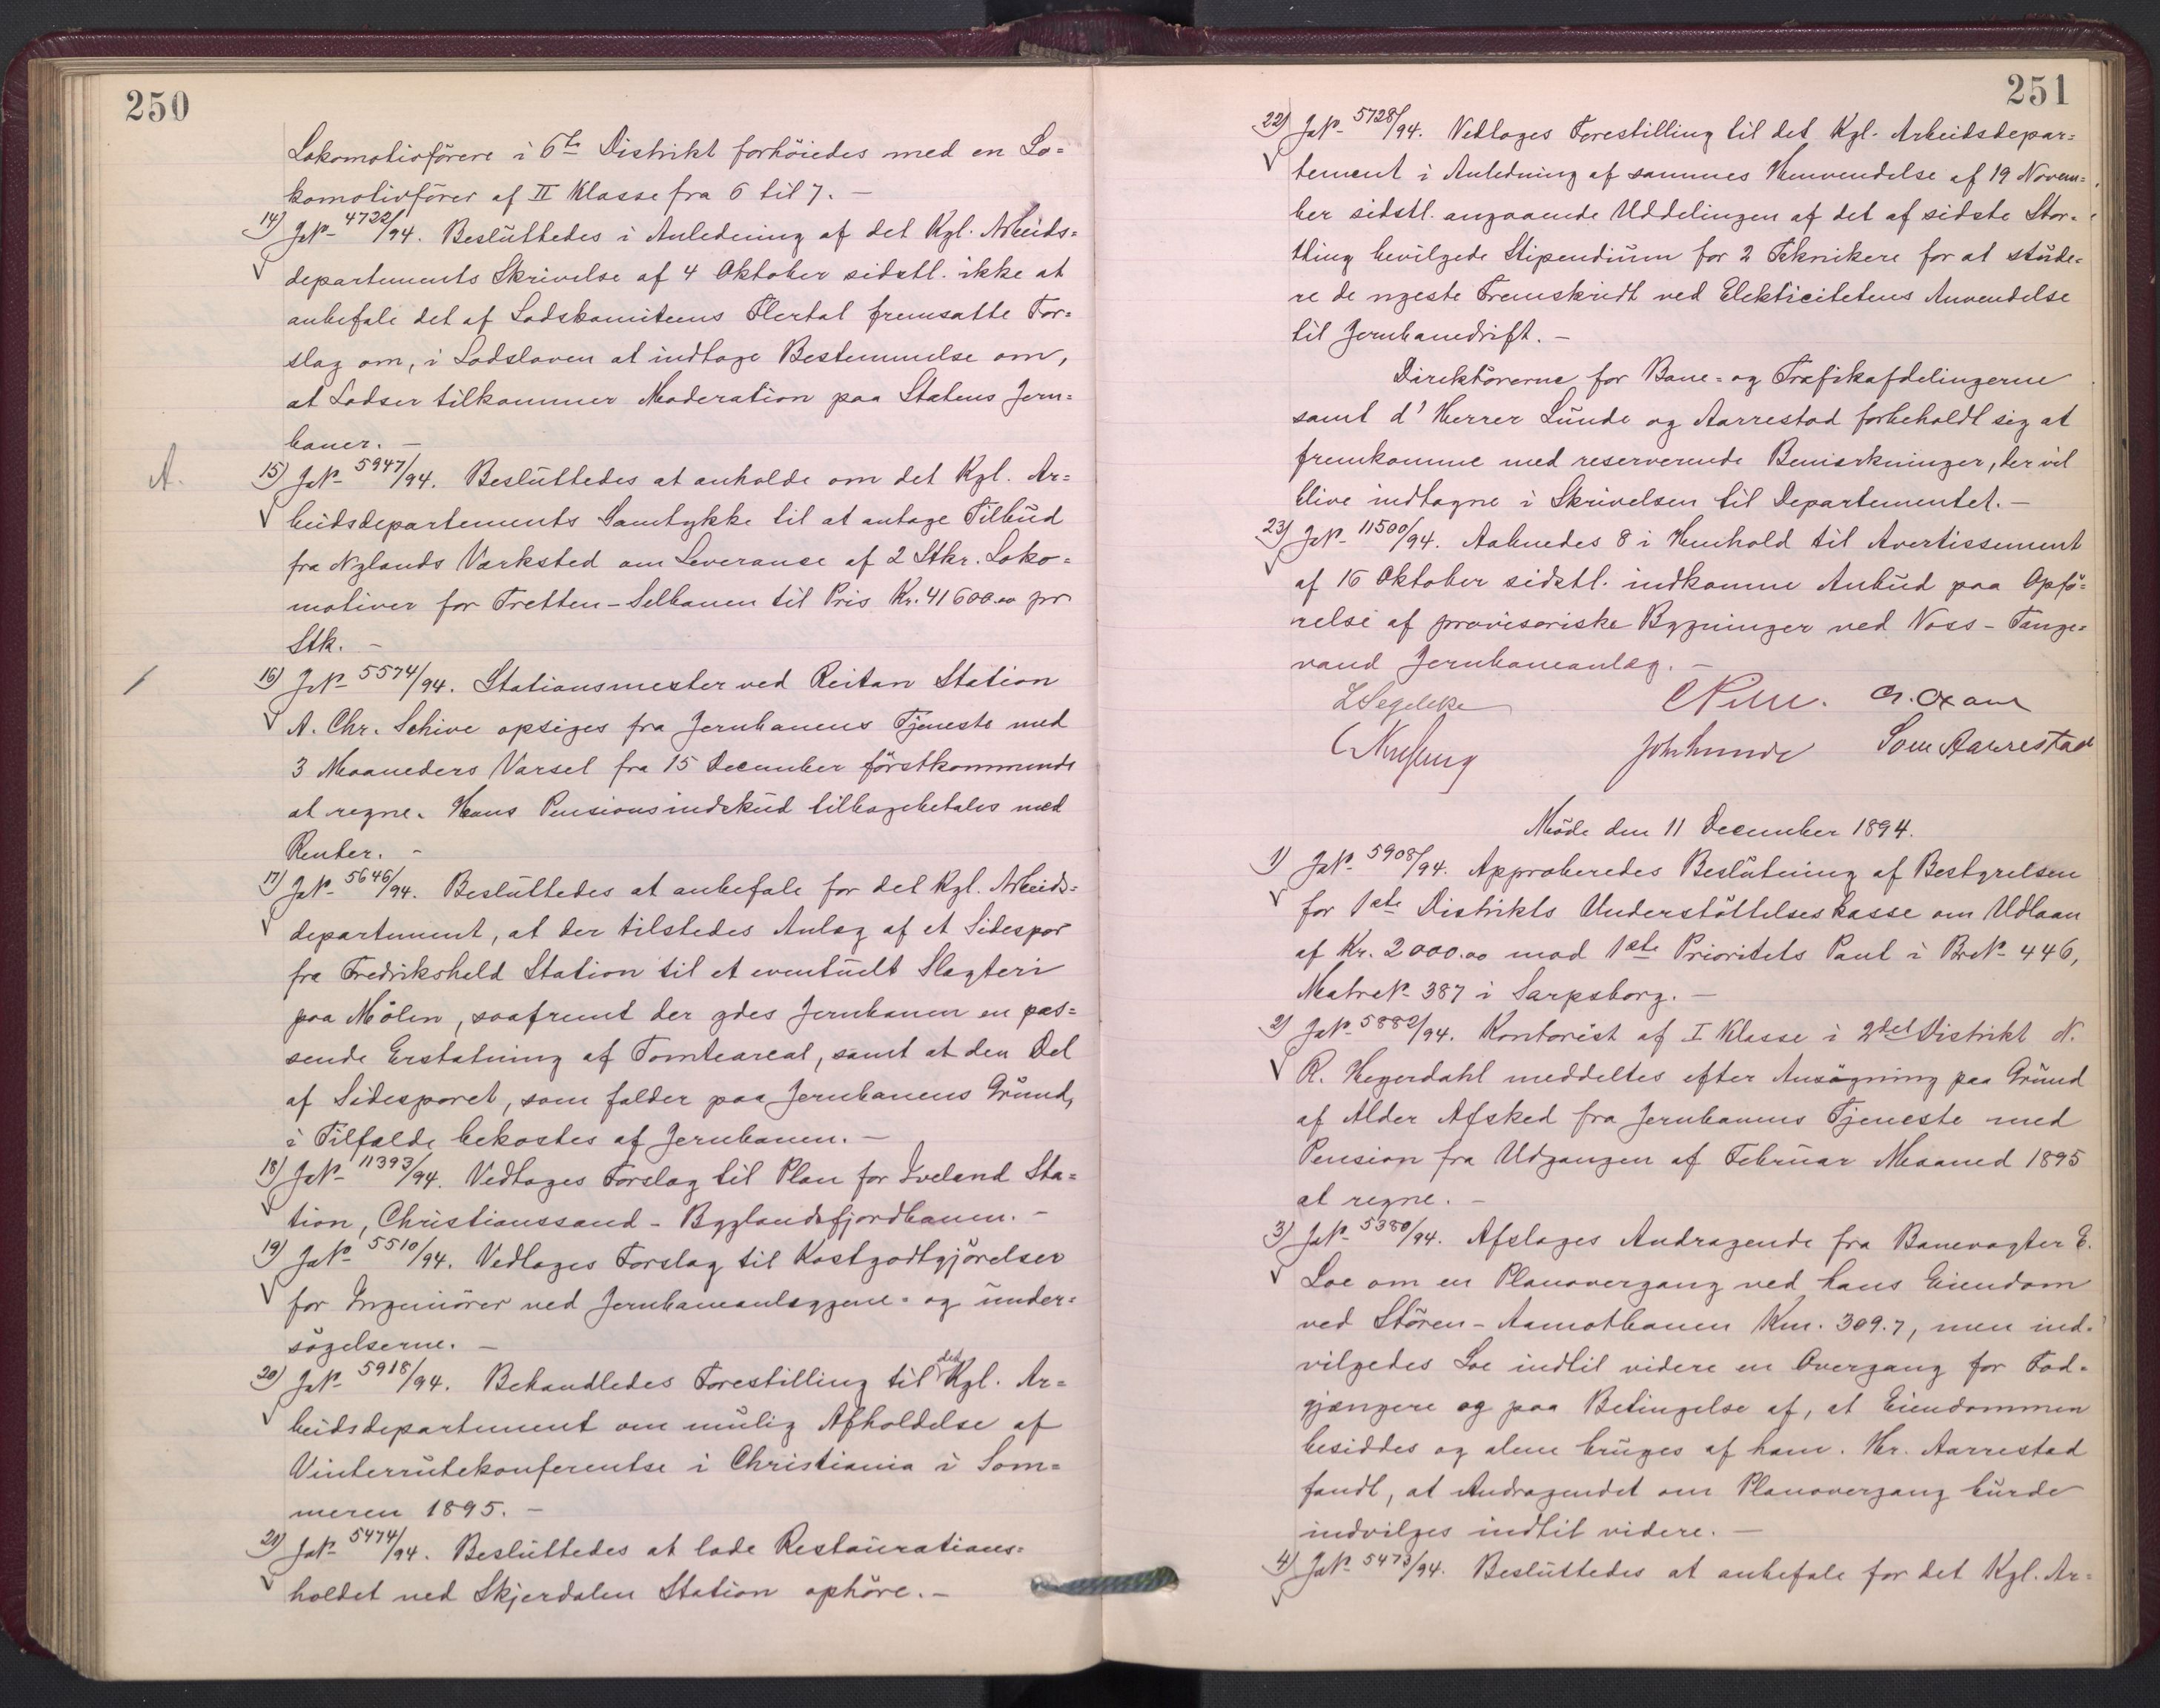 250
Lokomotivförere i 6te Distrikt forhöiedes med en Lo=
komotivförer af II Klasse fra 6 til 7. —
14) JNo 4732/94. Besluttedes i Anledning af det Kgl. Arbeids=
departements Skrivelse af 4 Oktober sidstl. ikke at
anbefale det af Lodskomiteens Flertal fremsatte For=
slag om, i Lodsloven at indtage Bestemmelse om,
at Lodser tilkommer Moderation paa Statens Jern=
baner. —
A.
15) JNo 5947/94. Besluttedes at anholde om det Kgl. Ar=
beidsdepartements Samtykke til at antage Tilbud
fra Nylands Værksted om Leveranse af 2 Stkr. Loko=
motiver for Tretten-Selbanen til Pris Kr. 41600.00 pr
Stk. —
16) JNo 5574/94. Stationsmester ved Reitan Station
A. Chr. Schive opsiges fra Jernbanens Tjeneste med
3 Maaneders Varsel fra 15 December förstkommende
at regne. Hans Pensionsindskud tilbagebetales med
Renter. —
17) JNo 5646/94. Besluttedes at anbefale for det Kgl. Arbeids=
departement, at der tilstedes Anlæg af et Sidespor
fra Fredrikshald Station til et eventuelt Slagteri
paa Mölen, saafremt der ydes Jernbanen en pas=
sende Erstatning af Tomteareal, samt at den Del
af Sidesporet, som falder paa Jernbanens Grund,
i Tilfælde bekostes af Jernbanen. —
18) JNo 11393/94. Vedtages Forslag til Plan for Iveland Sta=
tion, Christianssand - Byglandsfjordbanen. —
19) JNo 5510/94. Vedtages Forslag til Kostgodtgjörelser
for Ingeniörer ved Jernbaneanlæggene- og under=
sögelserne. —
20) JNo 5918/94. Behandledes Forestilling til det Kgl. Ar=
beidsdepartement om mulig Afholdelse af
Vinterrutekonferentse i Christiania i Som=
meren 1895. —
21) JNo 5474/94. Besluttedes at lade Restaurations=
holdet ved Skjerdalen Station ophöre. —
251
22) JNo 5728/94. Vedtages Forestilling til det Kgl. Arbeidsdepar=
tement i Anledning af sammes Henvendelse af 19 Novem=
ber sidstl. angaaende Uddelingen af det af sidste Stor=
thing bevilgede Stipendium for 2 Teknikere for at stude=
re de nyeste Fremskridt ved Elekticitetens Anvendelse
til Jernbanedrift. —
Direktörerne for Bane= og Trafikafdelingerne
samt d' Herrer Lunde og Aarrestad forbeholdt sig at
fremkomme med reserverende Bemærkninger, der vil
blive indtagne i Skrivelsen til Departementet. —
23) JNo 11500/94. Aabnedes 8 i Henhold til Avertissement
af 16 Oktober sidstl. indkomne Anbud paa Opfö=
relse af provisoriske Bygninger ved Voss - Tauge=
vand Jernbaneanlæg. —
LSegelcke
Joh Lunde Sven Aarrestad
Möde den 11 December 1894.
1) JNo 5908/94. Approberedes Beslutning af Bestyrelsen
for 1ste Distrikts Understöttelseskasse om Udlaan
af Kr. 2000.00 mod 1ste Prioritets Pant i BrNo 446,
MatrNo 387 i Sarpsborg. —
2) JNo 5882/94. Kontorist af I Klasse i 2det Distrikt N.
R. Hegerdahl meddeltes efter Ansøgning paa Grund
af Alder Afsked fra Jernbanens Tjeneste med
Pension fra Udgangen af Februar Maaned 1895
at regne. —
3) JNo 5380/94. Afslages Andragende fra Banevogter E.
Loe om en Planovergang ved hans Eiendom
ved Stören - Aamotbanen Km. 309.7, men ind=
vilgedes Loe indtil videre en Overgang for Fod=
gjængere og paa Betingelse af, at Eiendommen
besiddes og alene bruges af ham. Hr. Aarrestad
fandt, at Andragendet om Planovergang burde
indvilges indtil videre. —
4) JNo 5473/94. Besluttedes at anbefale for det Kgl. Ar=